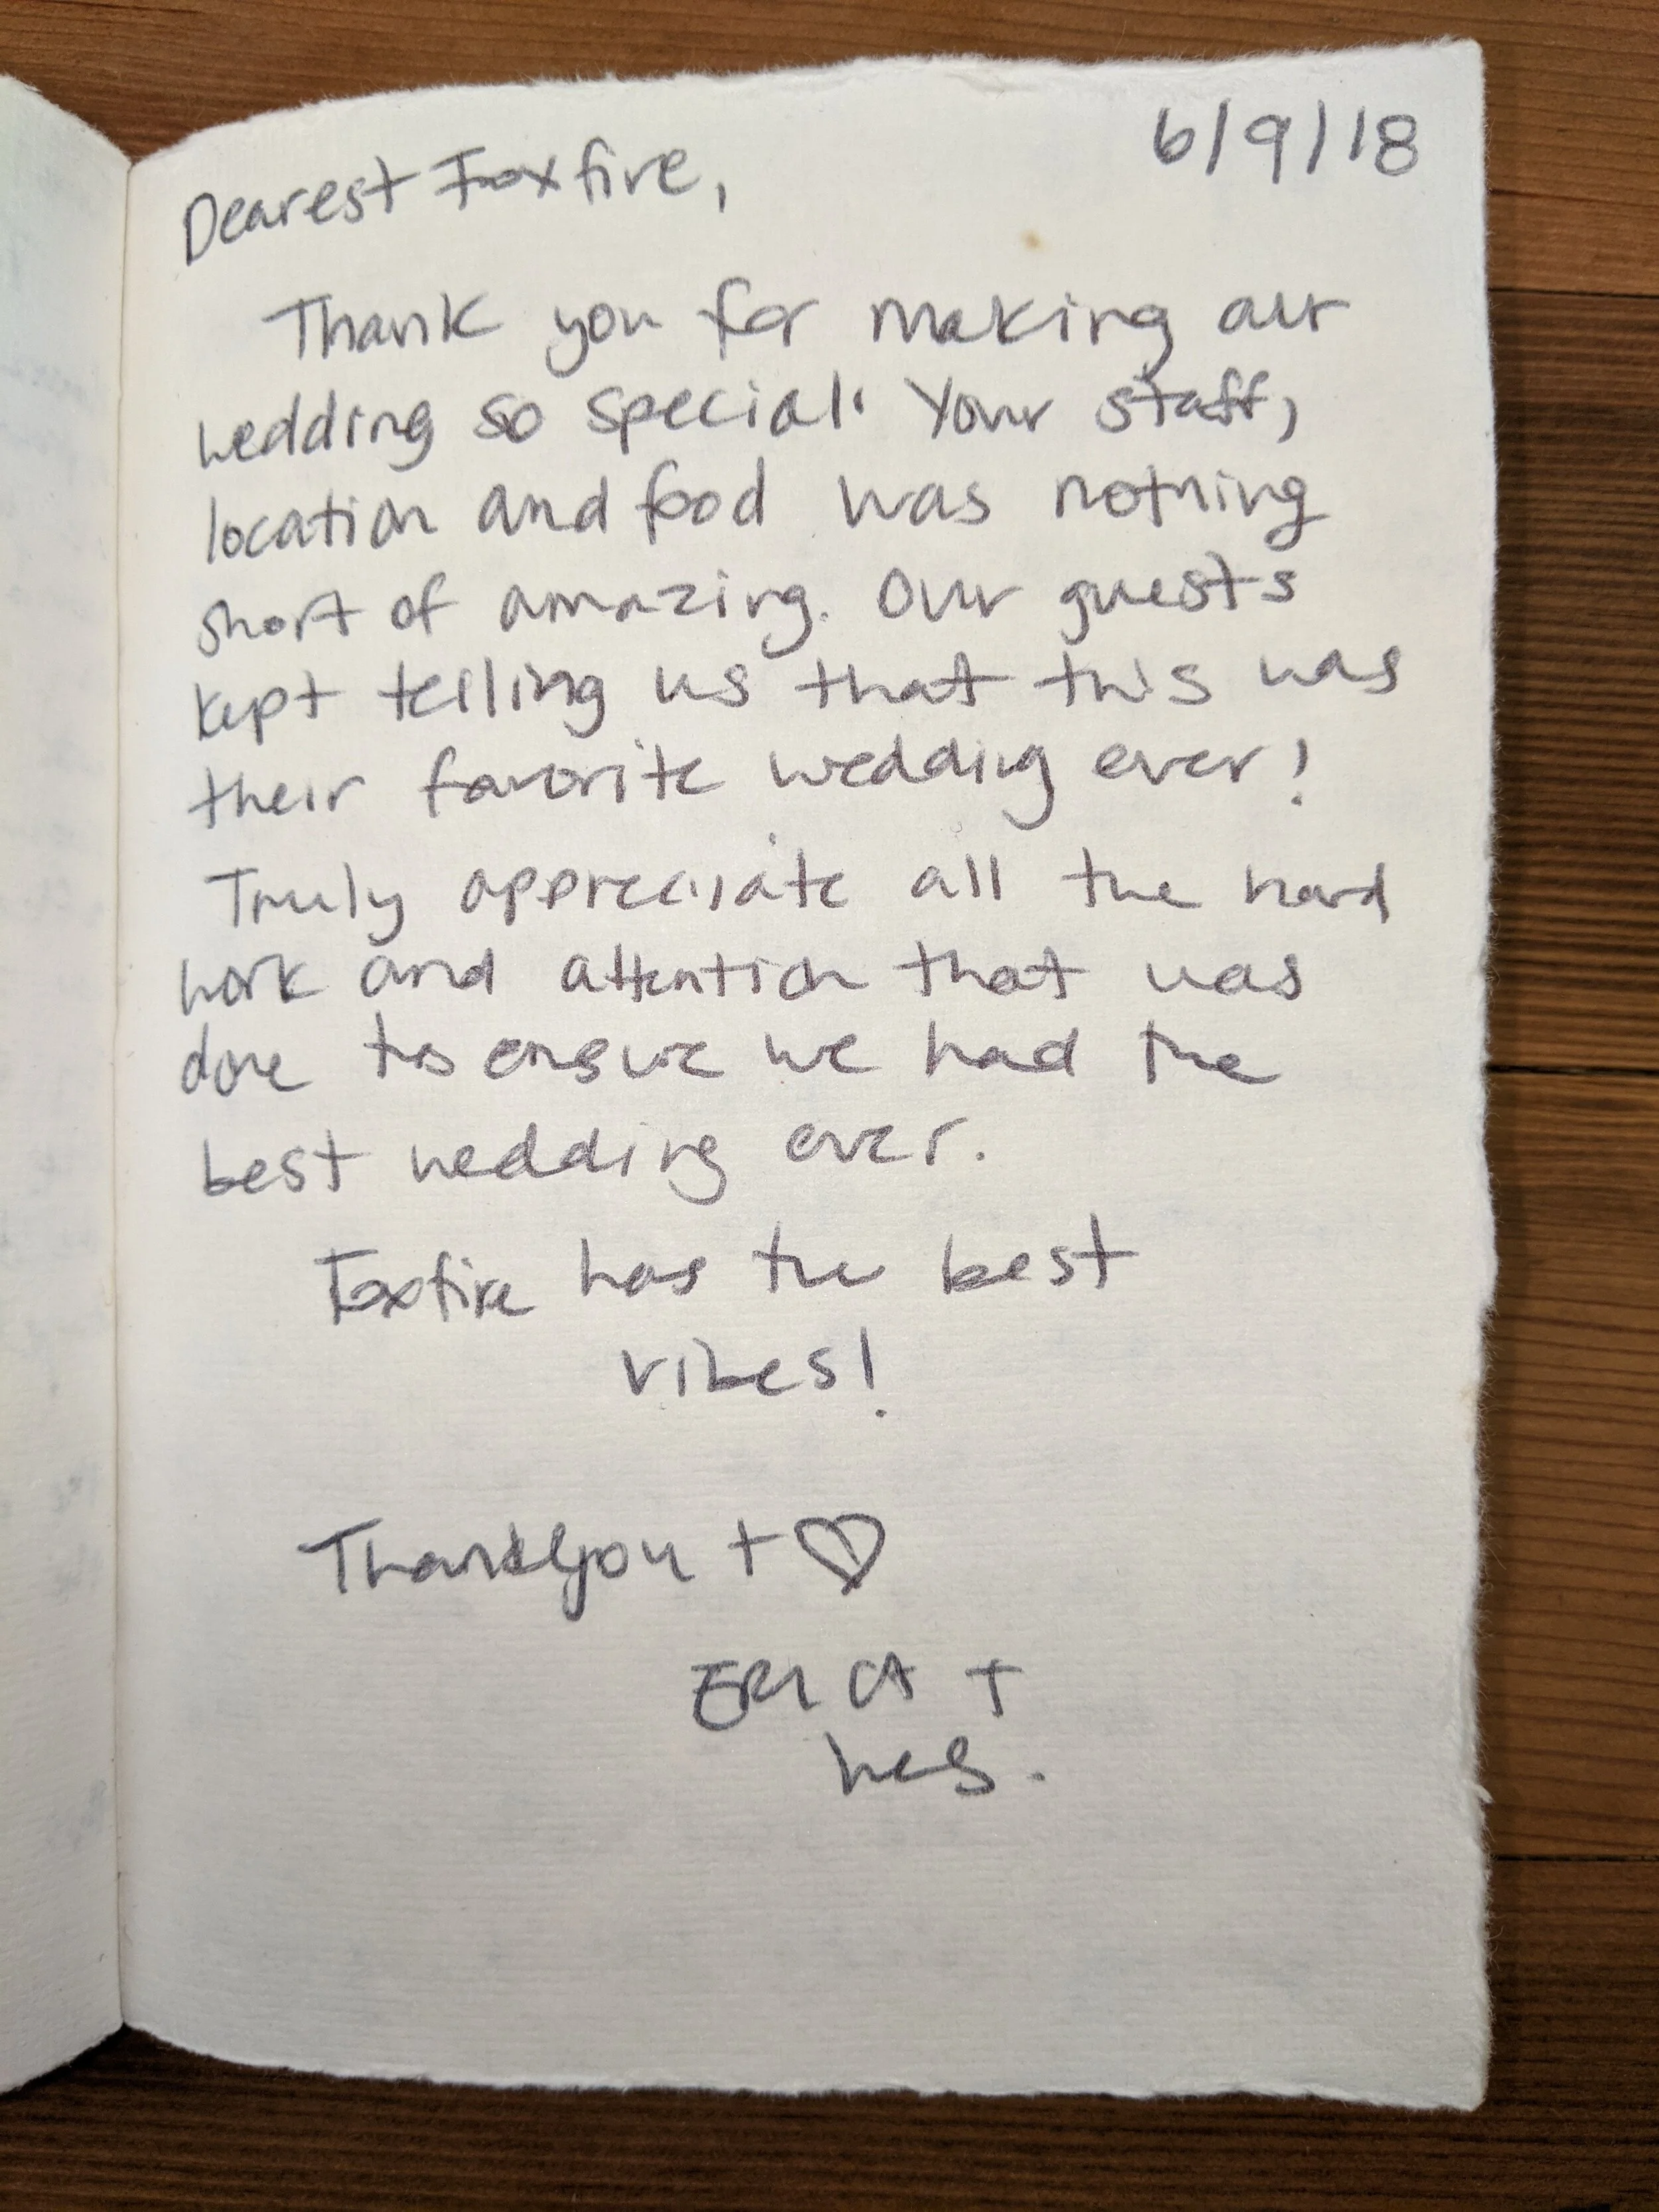 6/9/18
Dearest Foxfire,
Thank you for making our
wedding so special! Your staff,
location and food was nothing
short of amazing. Our guests
kept telling us that this was
their favorite wedding ever!
Truly appreciate all the hard
work and attention that was
done to ensure we had the
best wedding ever.
Foxfire has the best
vibes!
Thankyou + ♡
ERICA +
Wes.